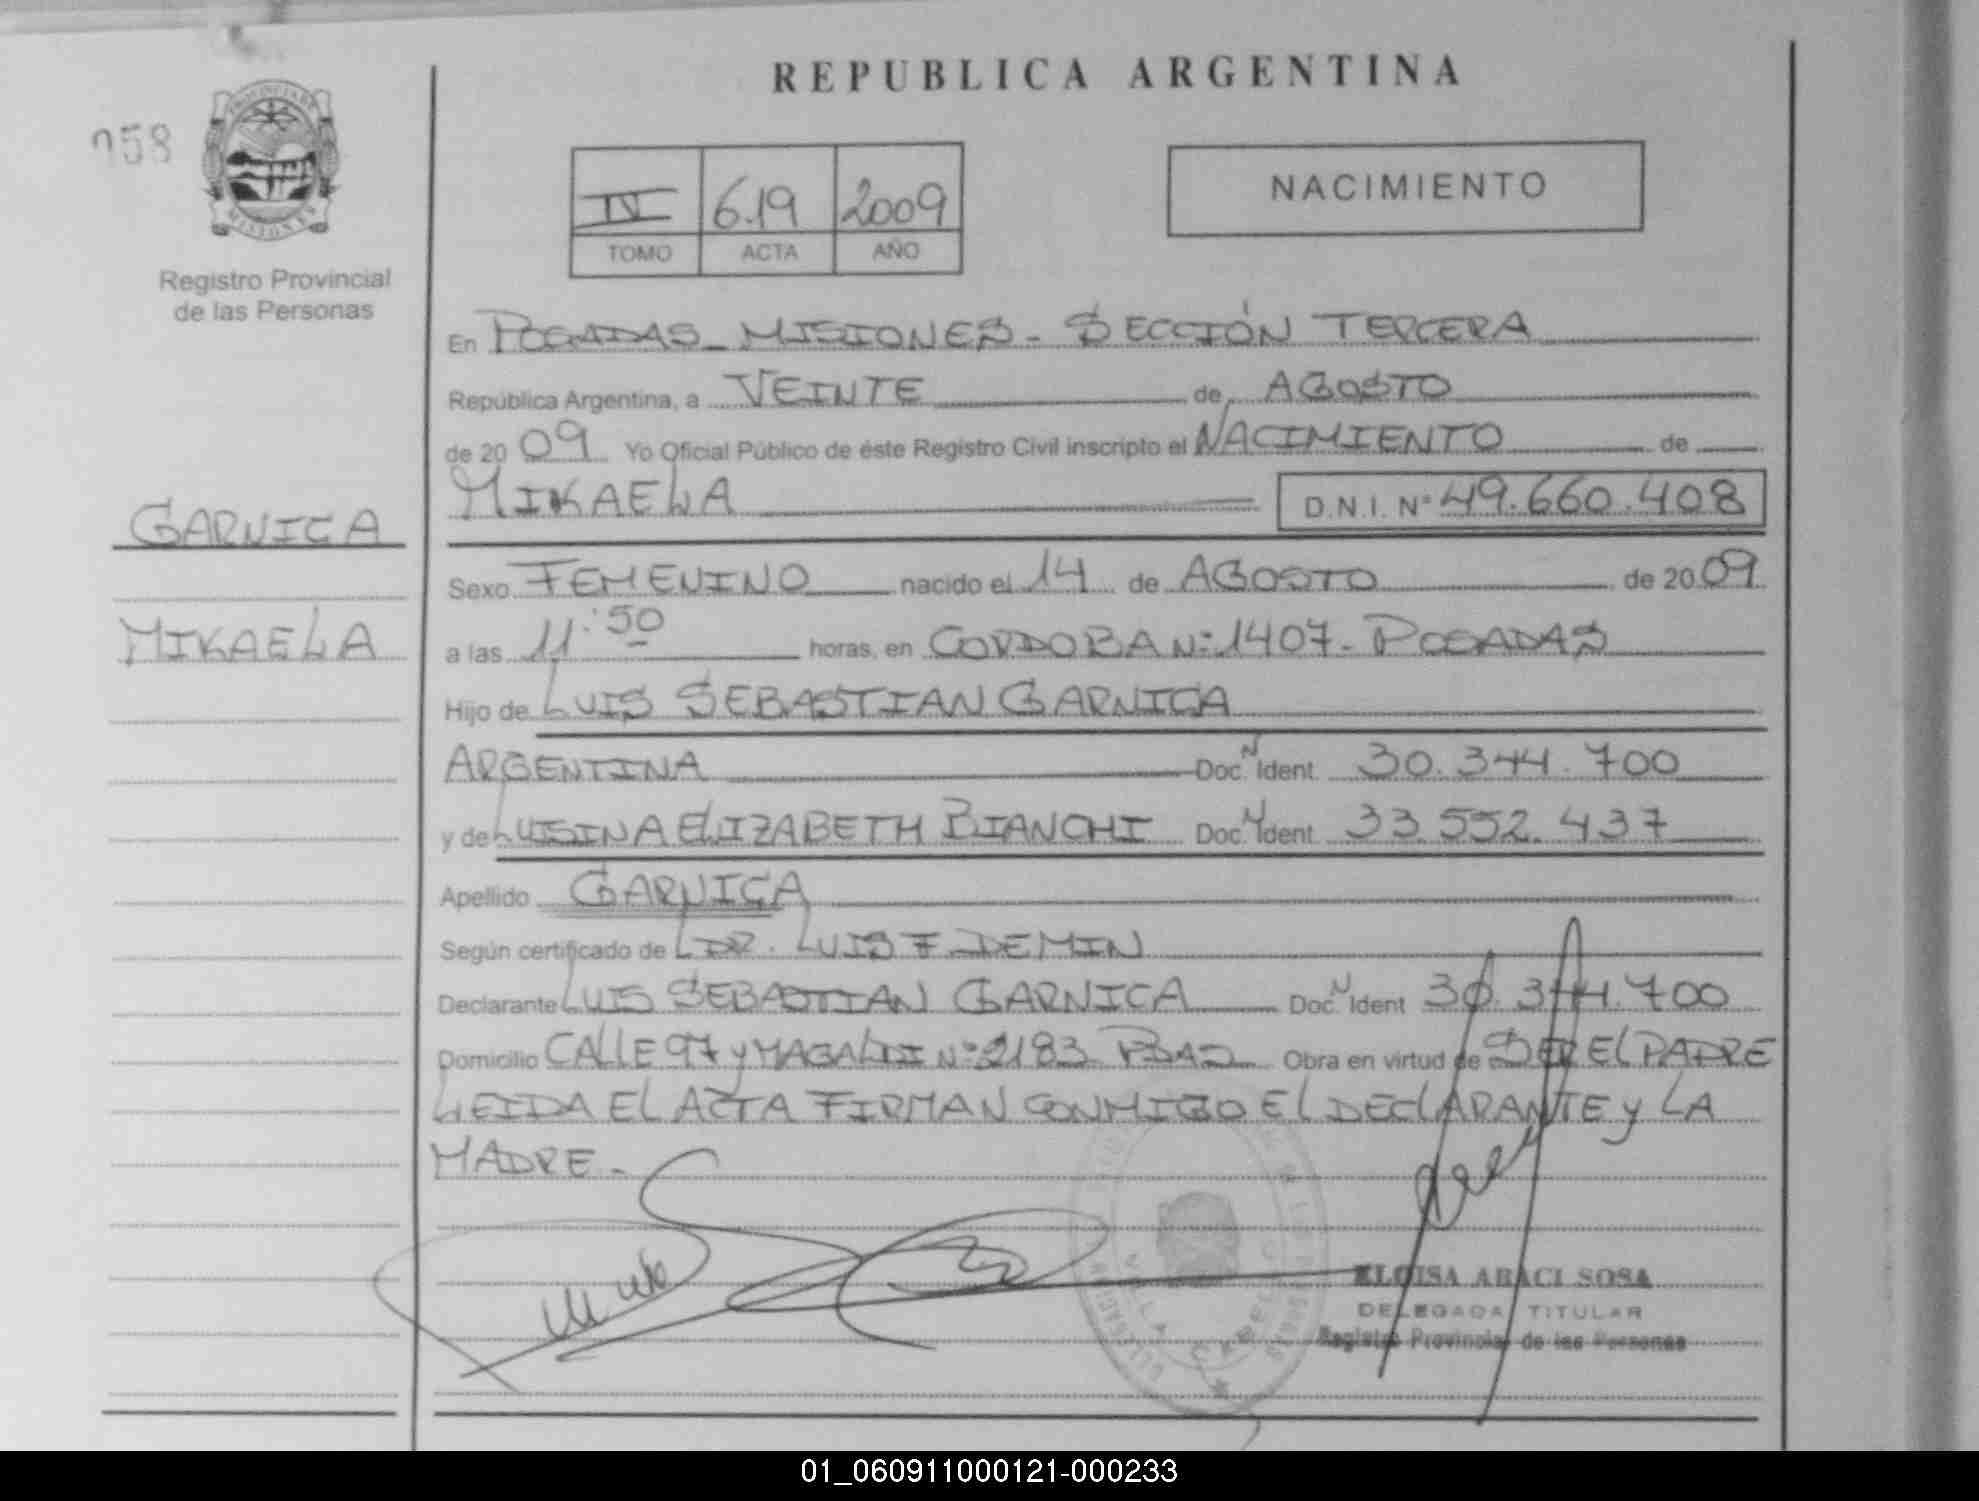 REPUBLICA ARGENTINA
058
PROVINCIA DE
MISIONES
Registro Provincial
de las Personas
IV 619 2009
TOMO ACTA AÑO
NACIMIENTO
En POSADAS - MISIONES - SECCIÓN TERCERA
República Argentina, a VEINTE de AGOSTO
de 2009 Yo Oficial Público de éste Registro Civil inscripto el NACIMIENTO de
MIKAELA D.N.I. Nº 49.660.408
GARNICA
MIKAELA
Sexo FEMENINO nacido el 14 de AGOSTO de 2009
a las 11:50 horas, en CORDOBA Nº 1407 - POSADAS
Hijo de LUIS SEBASTIAN GARNICA
ARGENTINA Doc. N Ident 30.344.700
y de LUISINA ELIZABETH BIANCHI Doc. N Ident 33.552.437
Apellido GARNICA
Según certificado de L DR. LUIS F. DEMIN
Declarante LUIS SEBASTIAN GARNICA Doc. N Ident 30.344.700
Domicilio CALLE 97 y MAGALDI Nº 2183 PDAS Obra en virtud de SER EL PADRE
LEIDA EL ACTA FIRMAN CONMIGO EL DECLARANTE y LA
MADRE -
ELOISA ARACI SOSA
DELEGADA TITULAR
Registro Provincial de las Personas
01_060911000121-000233